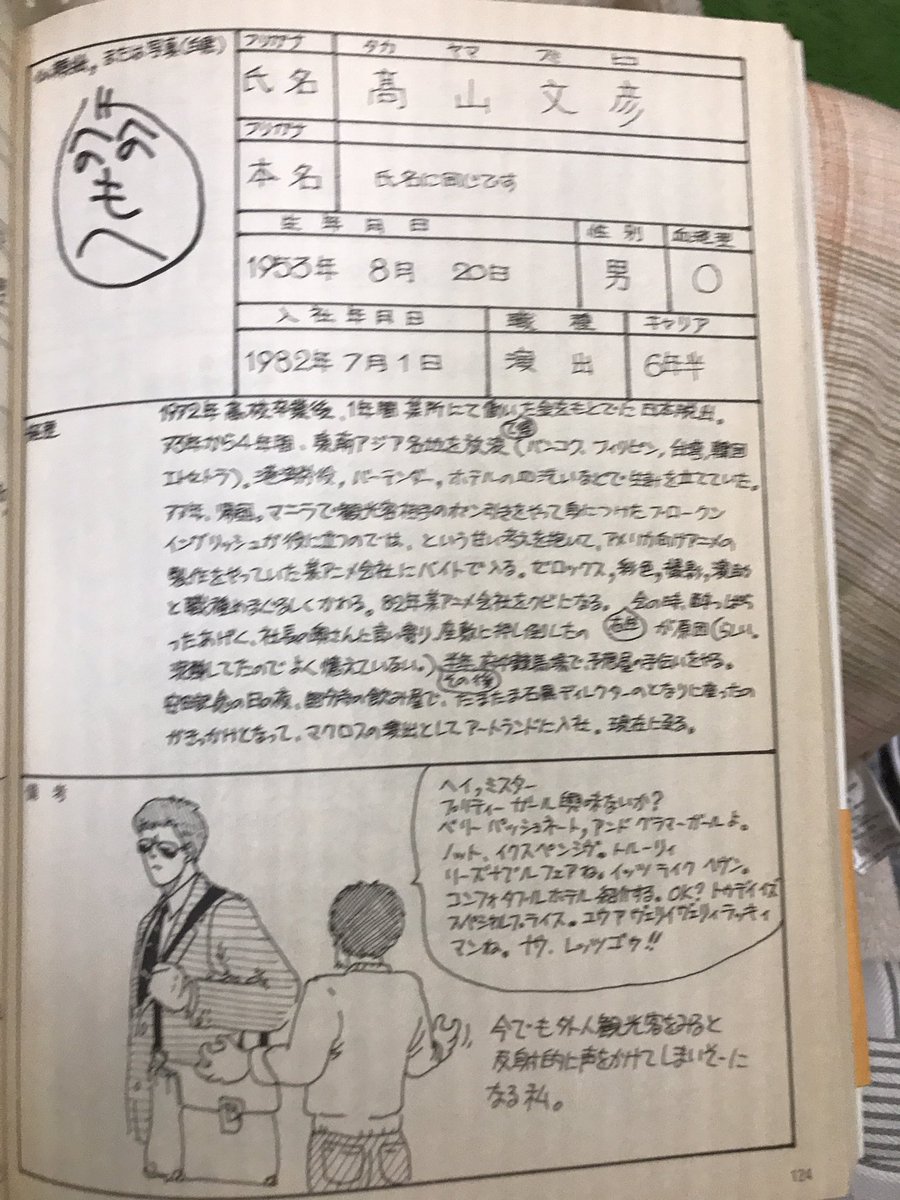 または写真(自画)
へのへのもへ
フリガナ タカ ヤマ フミ ヒコ
氏名 髙山文彦
フリガナ
本名 氏名に同じです
生年月日 性別 血液型
1953年 8月 20日 男 O
入社年月日 職種 キャリア
1982年7月1日 演出 6年半
経歴
1972年高校卒業後、1年間某所にて働いた金をもとでに日本脱出。
73年から4年間、東南アジア各地を放浪(バンコク、フィリピン、台湾、韓国
エトセトラ)。港湾労役、バーテンダー、ホテルの皿洗いなどで生計を立てていた。
77年、帰国。マニラで観光客相手のポン引きをやって身につけたブロークン
イングリッシュが役に立つのでは、という甘い考えを抱いて、アメリカ向けアニメの
製作をやっていた某アニメ会社にバイトで入る。ゼロックス、彩色、撮影、演助
と職種めまぐるしくかわる。82年某アニメ会社をクビになる。会の時、酔っぱら
ったあげく、社長の奥さんに言い寄り、座敷に押し倒したの が原因(らしい。
泥酔してたのでよく憶えていない。)
その後
の日の夜、国分寺の飲み屋で、たまたま石黒ディレクターのとなりに座ったの
がきっかけとなって、マクロスの演出としてアートランドに入社。現在に至る。
備考
ヘイ,ミスター
プリティー ガール興味ないか?
ベリー パッショネート,アンド グラマーガールよ。
ノット、イクスペンシヴ。トルーリィ
リーズナブル フェアね。イッツ ライク ヘヴン。
コンフォタブル ホテル 紹介する。OK? トゥデイズ
スペシャルプライス。ユウア ヴェリィヴェリィラッキィ
マンね。ナウ、レッツゴウ!!
今でも外人観光客をみると
反射的に声をかけてしまいそーに
なる私。
124